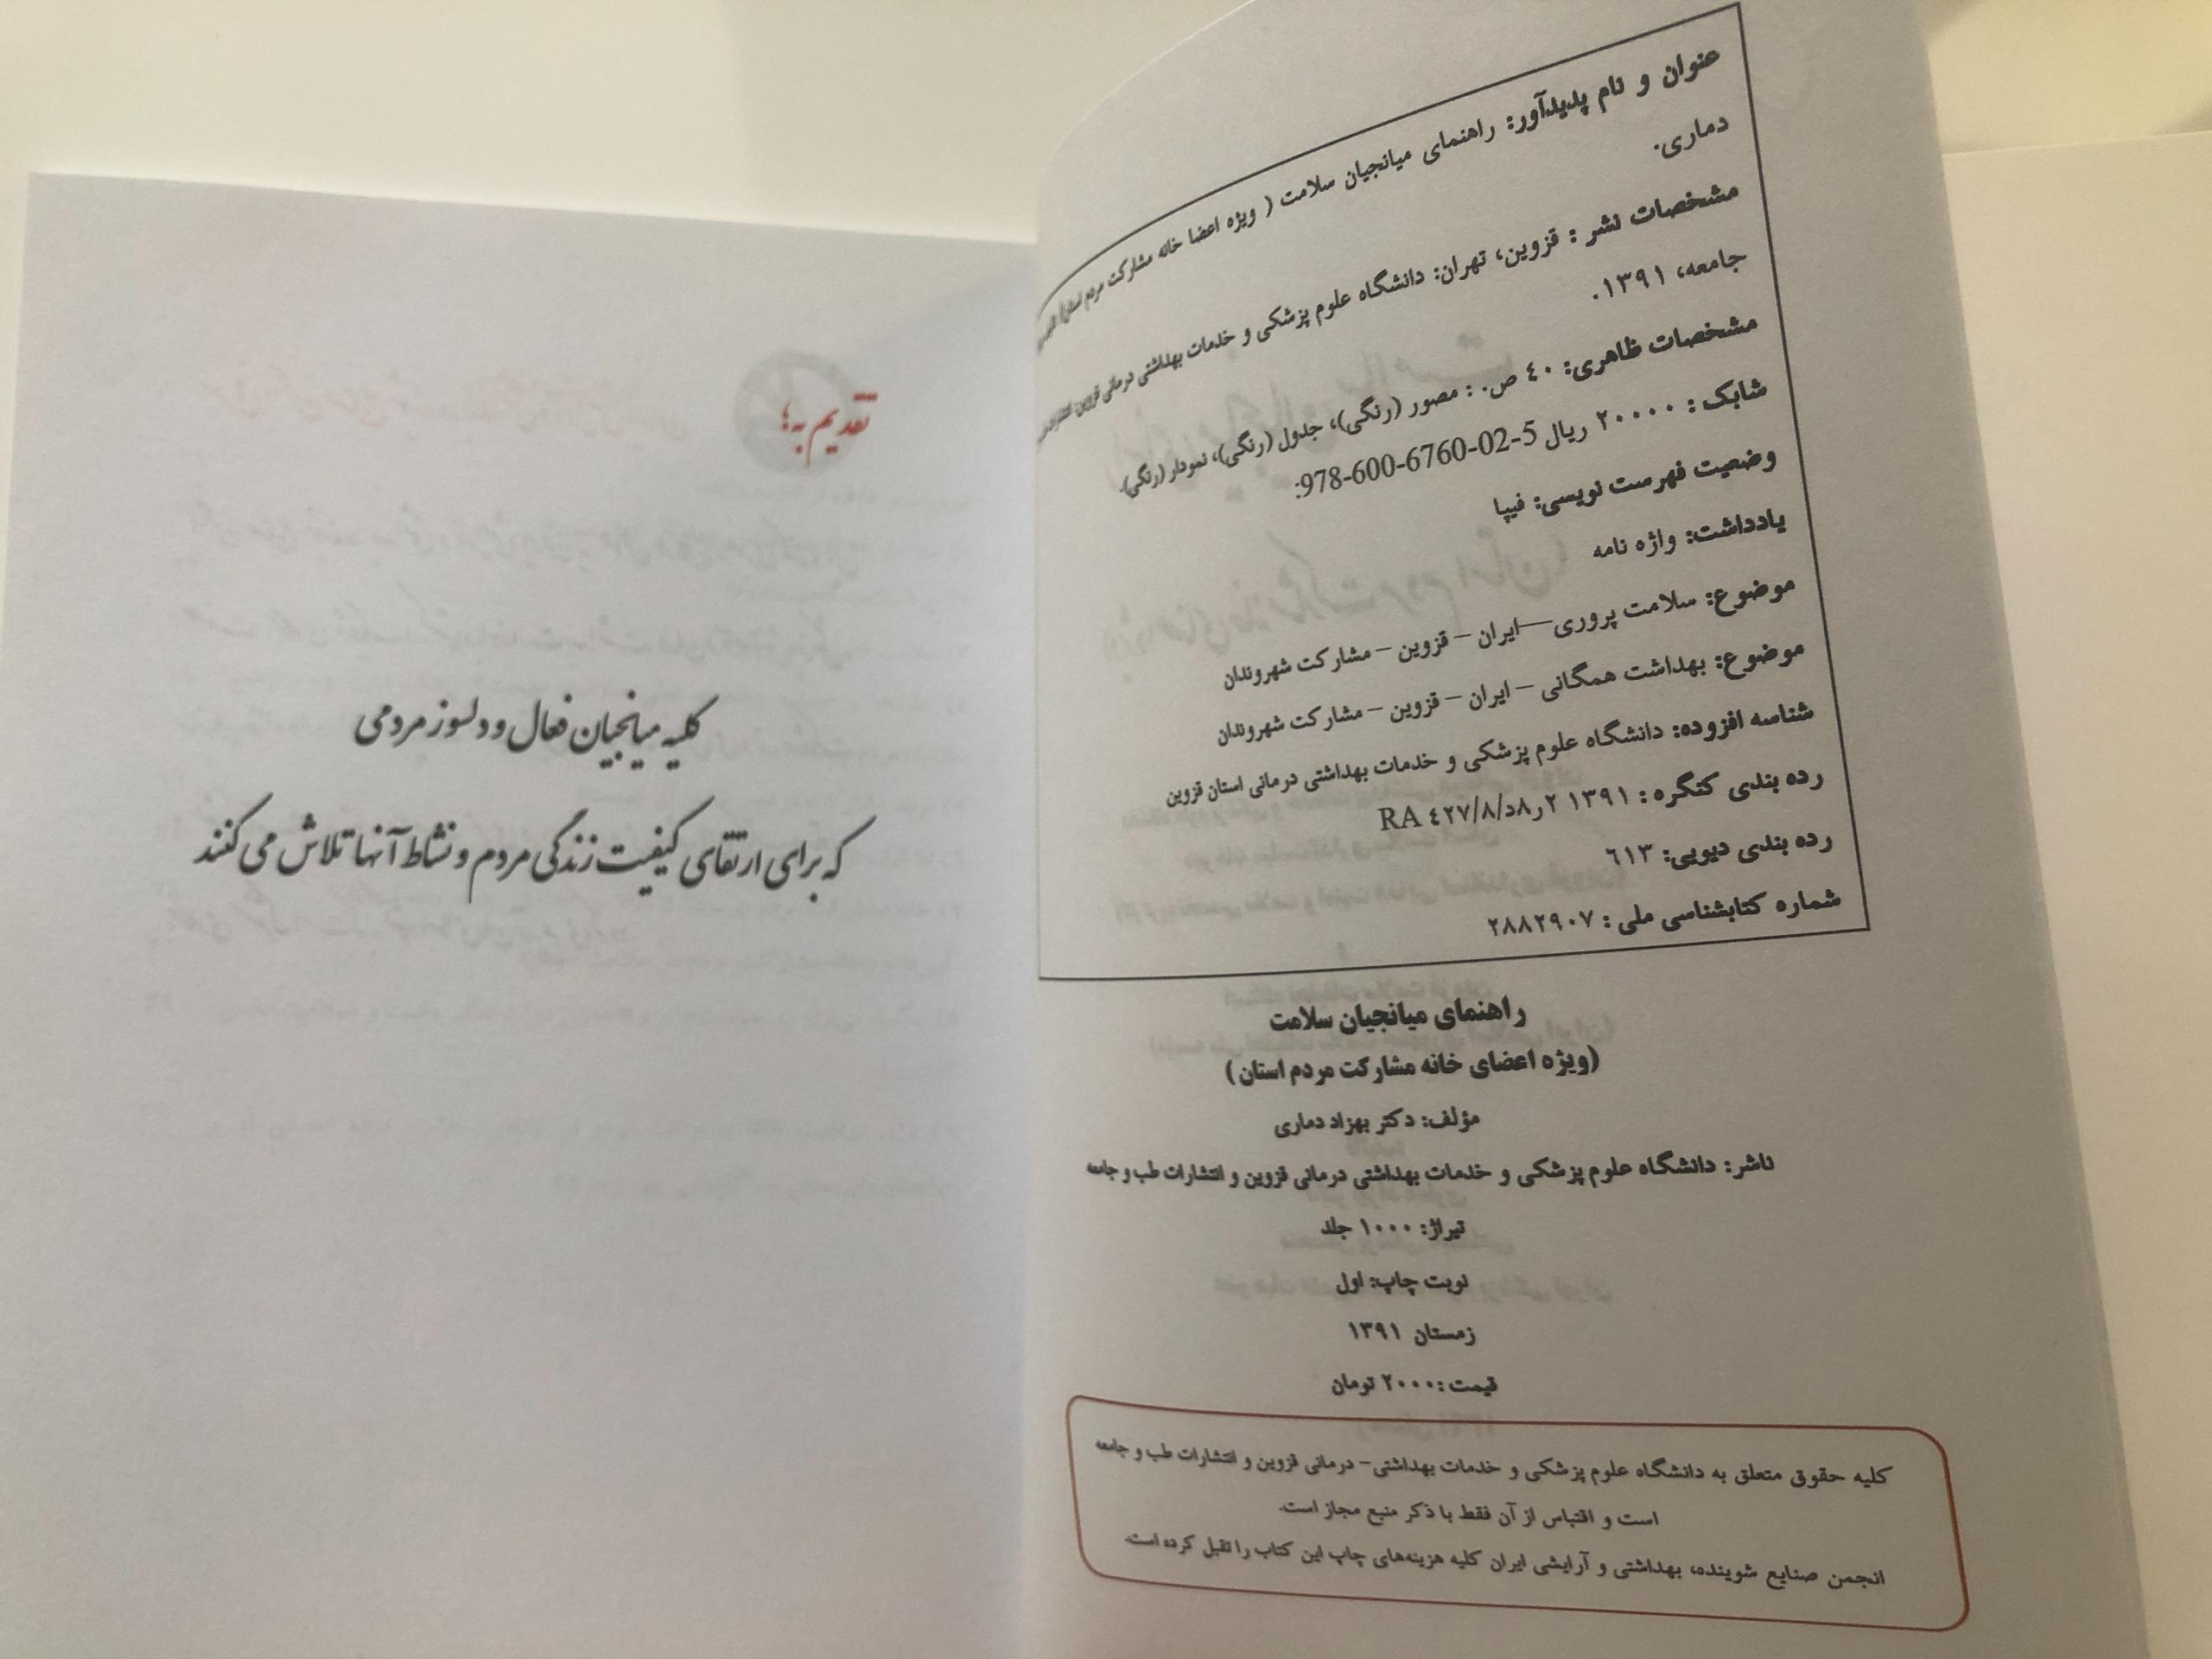 عنوان و نام پدیدآور: راهنمای میانجیان سلامت ( ویژه اعضا خانه مشارکت مردم استان)
دماری.
مشخصات نشر : قزوین، تهران: دانشگاه علوم پزشکی و خدمات بهداشتی درمانی قزوین
جامعه، ۱۳۹۱.
مشخصات ظاهری: ٤٠ ص. : مصور (رنگی)، جدول (رنگی)، نمودار (رنگی).
شابک : ۲۰۰۰۰ ریال 978-600-6760-02-5:
وضعیت فهرست نویسی: فیپا
یادداشت: واژه نامه
موضوع: سلامت پروری—ایران – قزوین – مشارکت شهروندان
موضوع: بهداشت همگانی – ایران – قزوین – مشارکت شهروندان
شناسه افزوده: دانشگاه علوم پزشکی و خدمات بهداشتی درمانی استان قزوین
رده بندی کنگره : ۱۳۹۱ ۲ر۸د/۸/٤٢٧ RA
رده بندی دیویی: ٦١٣
شماره کتابشناسی ملی : ۲۸۸۲۹۰۷
راهنمای میانجیان سلامت
(ویژه اعضای خانه مشارکت مردم استان)
مؤلف: دکتر بهزاد دماری
ناشر: دانشگاه علوم پزشکی و خدمات بهداشتی درمانی قزوین و انتشارات طب و جامعه
تیراژ: ۱۰۰۰ جلد
نوبت چاپ: اول
زمستان ۱۳۹۱
قیمت: ۲۰۰۰ تومان
کلیه حقوق متعلق به دانشگاه علوم پزشکی و خدمات بهداشتی- درمانی قزوین و انتشارات طب و جامعه
است و اقتباس از آن فقط با ذکر منبع مجاز است.
انجمن صنایع شوینده، بهداشتی و آرایشی ایران کلیه هزینه‌های چاپ این کتاب را تقبل کرده است.
تقدیم به؛
کلیه میانجیان فعال و دلسوز مردمی
که برای ارتقای کیفیت زندگی مردم و نشاط آنها تلاش می کنند